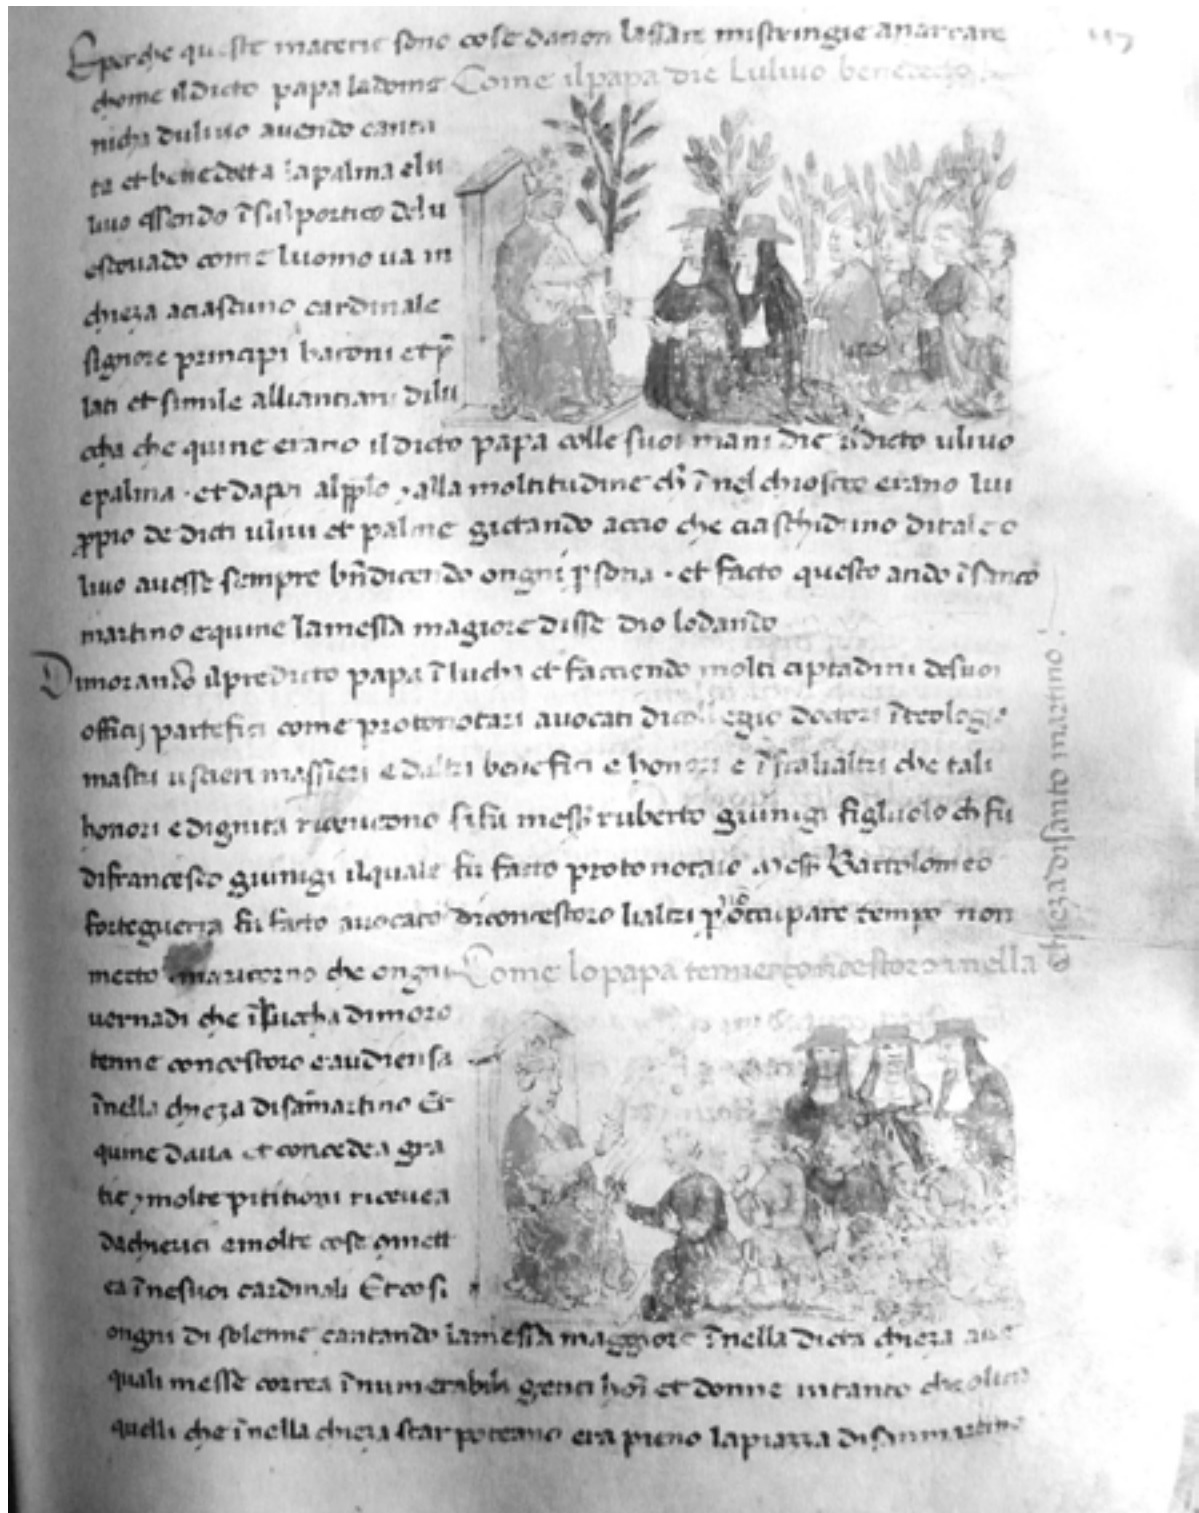 E perche queste materie sono cose danon lassare mistringie anarrare
chome il dicto papa ladome
Come il papa die luliuo benedecto
nicha duliuo auendo canta
ta et benedetta lapalma elu
liuo essendo ĩ sul portico delu
escouado come luomo ua in
chieza aciascuno cardinale
signore principi baroni et p̃
lati et simile allianthiani dilu
cha che quine erano il dicto papa colle suoi mani die il dicto uliuo
epalma · et dapoi al pplo , alla moltitudine ch̃ ĩ nel chiostro erano lui
ppio de dicti uliui et palme gictando accio che ciaschiduno di tale o
liuo auesse sempre bñdicendo ongni psona · et facto questo ando ĩ sancto
martino equine lamessa magiore disse dio lodando
Dimorando il predicto papa ĩ lucha et facciendo molti ciptadini desuoi
officij partefici come protonotari auocati dicollegio doctori ĩ teologie
mastri uscieri massieri e daltri benefici e honori e ĩ fralialtri che tali
honori e dignita riceuetono si fu mess̃ ruberto guinigi figluolo ch̃ fu
difrancesco guinigi ilquale fu facto protonotaio Mess̃ Bartolomeo
forteguerra fu facto auocato diconcestoro lialtri p nõ occupare tempo non
metto maritorno che ongni
Come lo papa tenne concestoro innella
uernadi che ĩ luccha dimoro
tenne concestoro eaudiensa
ĩnella chieza disãmartino Et
quine daua et concedea gra
tie , molte pititioni riceuea
dachierici emolte cose cõmett
ea ĩ nesuoi cardinali Et cosi
ongni di solenne cantando lamessa maggiore ĩnella dicta chieza
quali messe correa ĩnumerabili genti hoĩ et donne intanto che oltra
quelli che ĩnella chieza star poteano era pieno lapiazza di sanmartino
Chieza di santo martino :